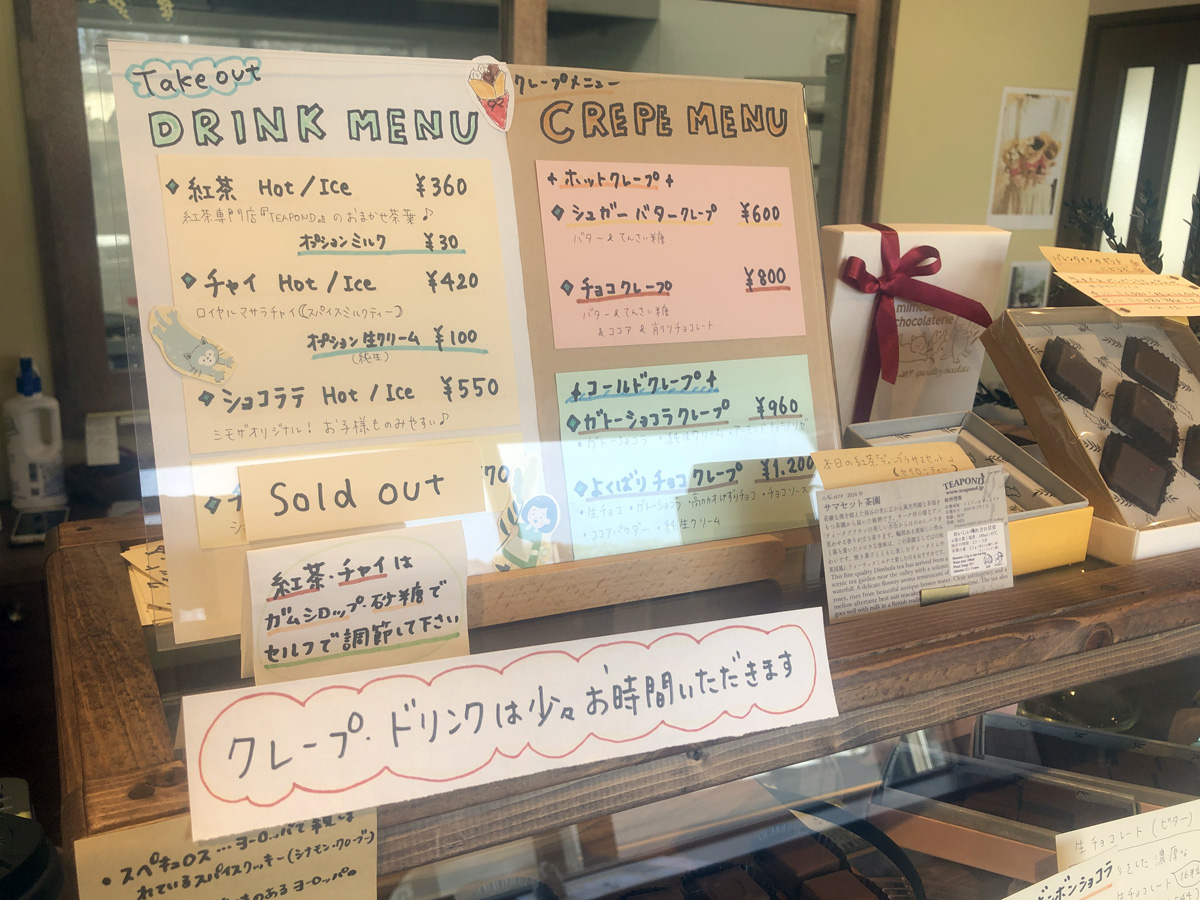 Take out
DRINK MENU
紅茶 Hot/Ice ¥360
紅茶専門店『TEAPOND』のおまかせ茶葉♪
オプションミルク ¥30
チャイ Hot/Ice ¥420
ロイヤルマサラチャイ(スパイスミルクティー)
オプション生クリーム ¥100
(純生)
ショコラテ Hot/Ice ¥550
ミモザオリジナル! お子様ものみやすい♪
Sold out
70
紅茶・チャイは
ガムシロップ 砂糖で
セルフで調節して下さい
クレープメニュー
CREPE MENU
ホットクレープ
シュガーバタークレープ ¥600
バター&てんさい糖
チョコクレープ ¥800
バター&てんさい糖
&ココア&削りチョコレート
コールドクレープ
ガトーショコラクレープ ¥960
・ガトーショコラ ・純生クリーム
よくばりチョコクレープ ¥1.200
・生チョコ・ガトーショコラ・高カカオけずりチョコ・チョコソース
・ココアパウダー・純生クリーム
クレープ・ドリンクは少々お時間いただきます
chocolaterie
specialty chocolate
バレンタインのギフト
本日の紅茶
TEAPOND
www.teapond.jp
サマセット茶園
おいしい淹れ方の目安
This fine quality Dimbula tea has arrived from
scenic tea garden near the valley with a
・スペキュロス…ヨーロッパで
れているスパイスクッキー(シナモン・クローブ)
のあるヨーロッパの
生チョコレート(ビター)
ボンボンショコラ
生チョコレート